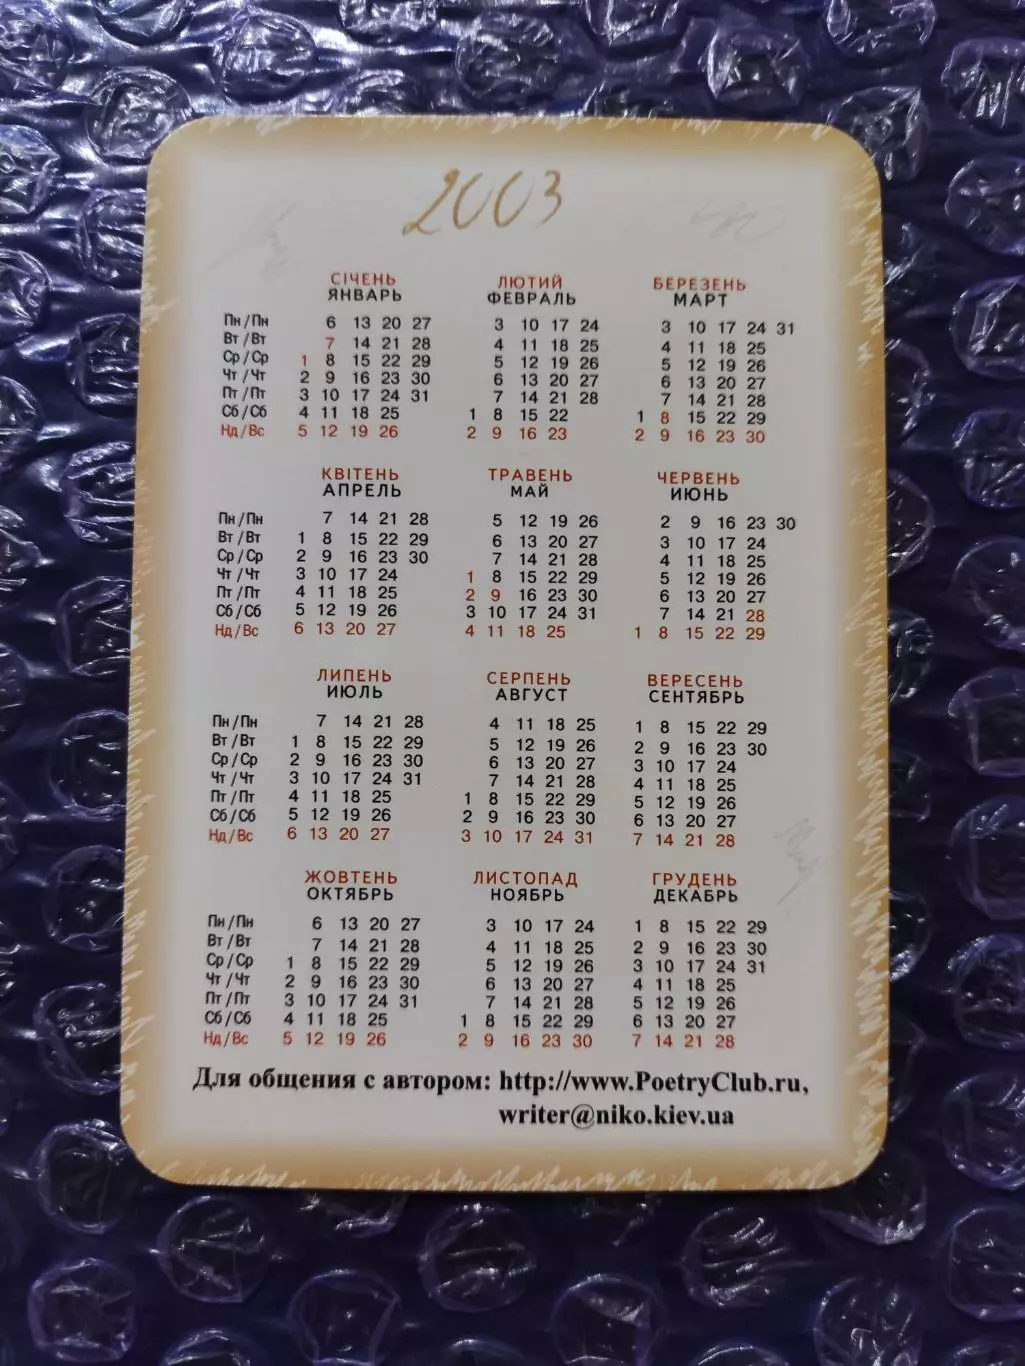 2003
СІЧЕНЬ ЛЮТИЙ БЕРЕЗЕНЬ
ЯНВАРЬ ФЕВРАЛЬ МАРТ
Пн/Пн 6 13 20 27 3 10 17 24 3 10 17 24 31
Вт/Вт 7 14 21 28 4 11 18 25 4 11 18 25
Ср/Ср 1 8 15 22 29 5 12 19 26 5 12 19 26
Чт/Чт 2 9 16 23 30 6 13 20 27 6 13 20 27
Пт/Пт 3 10 17 24 31 7 14 21 28 7 14 21 28
Сб/Сб 4 11 18 25 1 8 15 22 1 8 15 22 29
Нд/Вс 5 12 19 26 2 9 16 23 2 9 16 23 30
КВІТЕНЬ ТРАВЕНЬ ЧЕРВЕНЬ
АПРЕЛЬ МАЙ ИЮНЬ
Пн/Пн 7 14 21 28 5 12 19 26 2 9 16 23 30
Вт/Вт 1 8 15 22 29 6 13 20 27 3 10 17 24
Ср/Ср 2 9 16 23 30 7 14 21 28 4 11 18 25
Чт/Чт 3 10 17 24 1 8 15 22 29 5 12 19 26
Пт/Пт 4 11 18 25 2 9 16 23 30 6 13 20 27
Сб/Сб 5 12 19 26 3 10 17 24 31 7 14 21 28
Нд/Вс 6 13 20 27 4 11 18 25 1 8 15 22 29
ЛИПЕНЬ СЕРПЕНЬ ВЕРЕСЕНЬ
ИЮЛЬ АВГУСТ СЕНТЯБРЬ
Пн/Пн 7 14 21 28 4 11 18 25 1 8 15 22 29
Вт/Вт 1 8 15 22 29 5 12 19 26 2 9 16 23 30
Ср/Ср 2 9 16 23 30 6 13 20 27 3 10 17 24
Чт/Чт 3 10 17 24 31 7 14 21 28 4 11 18 25
Пт/Пт 4 11 18 25 1 8 15 22 29 5 12 19 26
Сб/Сб 5 12 19 26 2 9 16 23 30 6 13 20 27
Нд/Вс 6 13 20 27 3 10 17 24 31 7 14 21 28
ЖОВТЕНЬ ЛИСТОПАД ГРУДЕНЬ
ОКТЯБРЬ НОЯБРЬ ДЕКАБРЬ
Пн/Пн 6 13 20 27 3 10 17 24 1 8 15 22 29
Вт/Вт 7 14 21 28 4 11 18 25 2 9 16 23 30
Ср/Ср 1 8 15 22 29 5 12 19 26 3 10 17 24 31
Чт/Чт 2 9 16 23 30 6 13 20 27 4 11 18 25
Пт/Пт 3 10 17 24 31 7 14 21 28 5 12 19 26
Сб/Сб 4 11 18 25 1 8 15 22 29 6 13 20 27
Нд/Вс 5 12 19 26 2 9 16 23 30 7 14 21 28
Для общения с автором: http://www.PoetryClub.ru,
writer@niko.kiev.ua